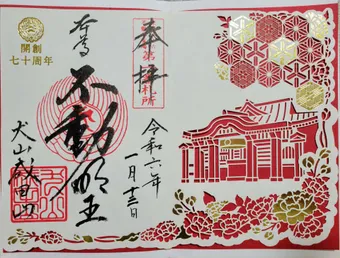 開創
七十周年
奉拝
本尊
不動明王
令和六年
一月十三日
犬山成田山
札所